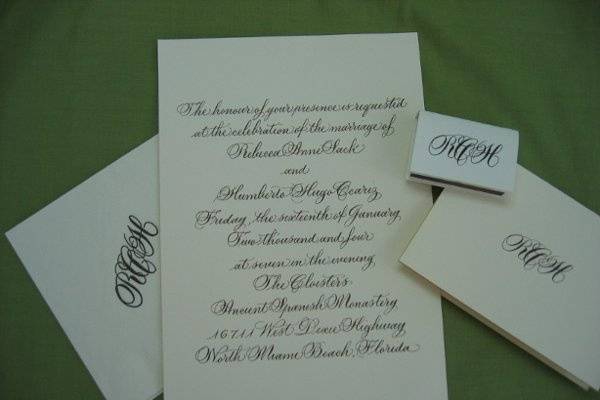 The honour of your presence is requested
at the celebration of the marriage of
Rebecca Anne Sack
and
Humberto Hugo Coarez
Friday, the sixteenth of January,
Two thousand and four
at seven in the evening
The Cloisters
Ancient Spanish Monastery
16711 West Dixie Highway
North Miami Beach, Florida
RCH
RCH
RCH